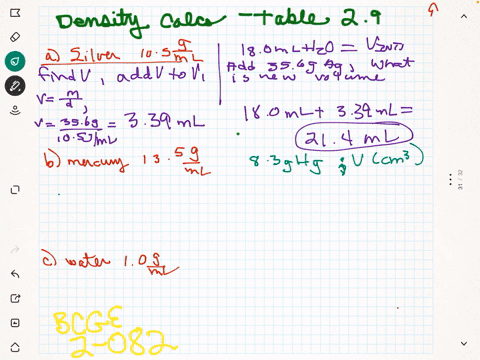 Density Calcs - Table 2.9
a) Silver 10.5 g/mL
find V, add V to V1
V = m/d,
V = 35.6g / 10.5g/mL = 3.39 mL
18.0 mL H2O = Vinit
Add 35.6g Ag, what
is new volume
18.0 mL + 3.39 mL =
21.4 mL
b) mercury 13.5 g/mL
8.3g Hg ; V (cm³)
c) water 1.0 g/mL
BCGE
2-082
31 / 32